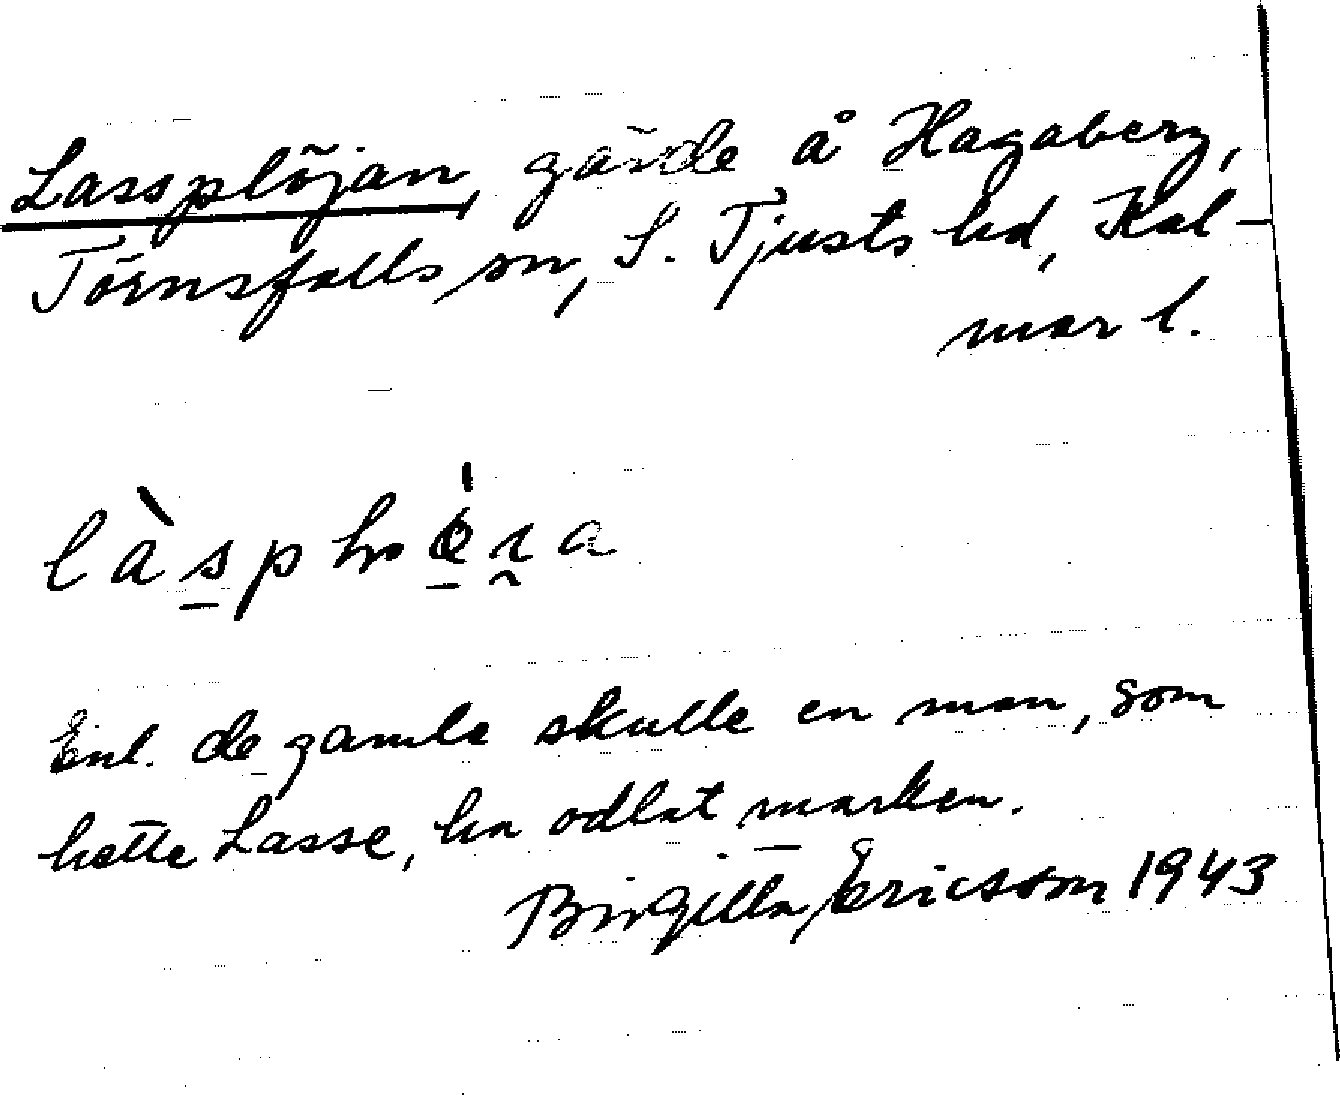 Lassplöjan, gärde å Hagaberg,
Törnsfalls sn, S. Tjusts hd, Kal-
mar l.
Enl. de gamle skulle en man, som
hette Lasse, ha odlat marken.
Birgitta Ericsson 1943